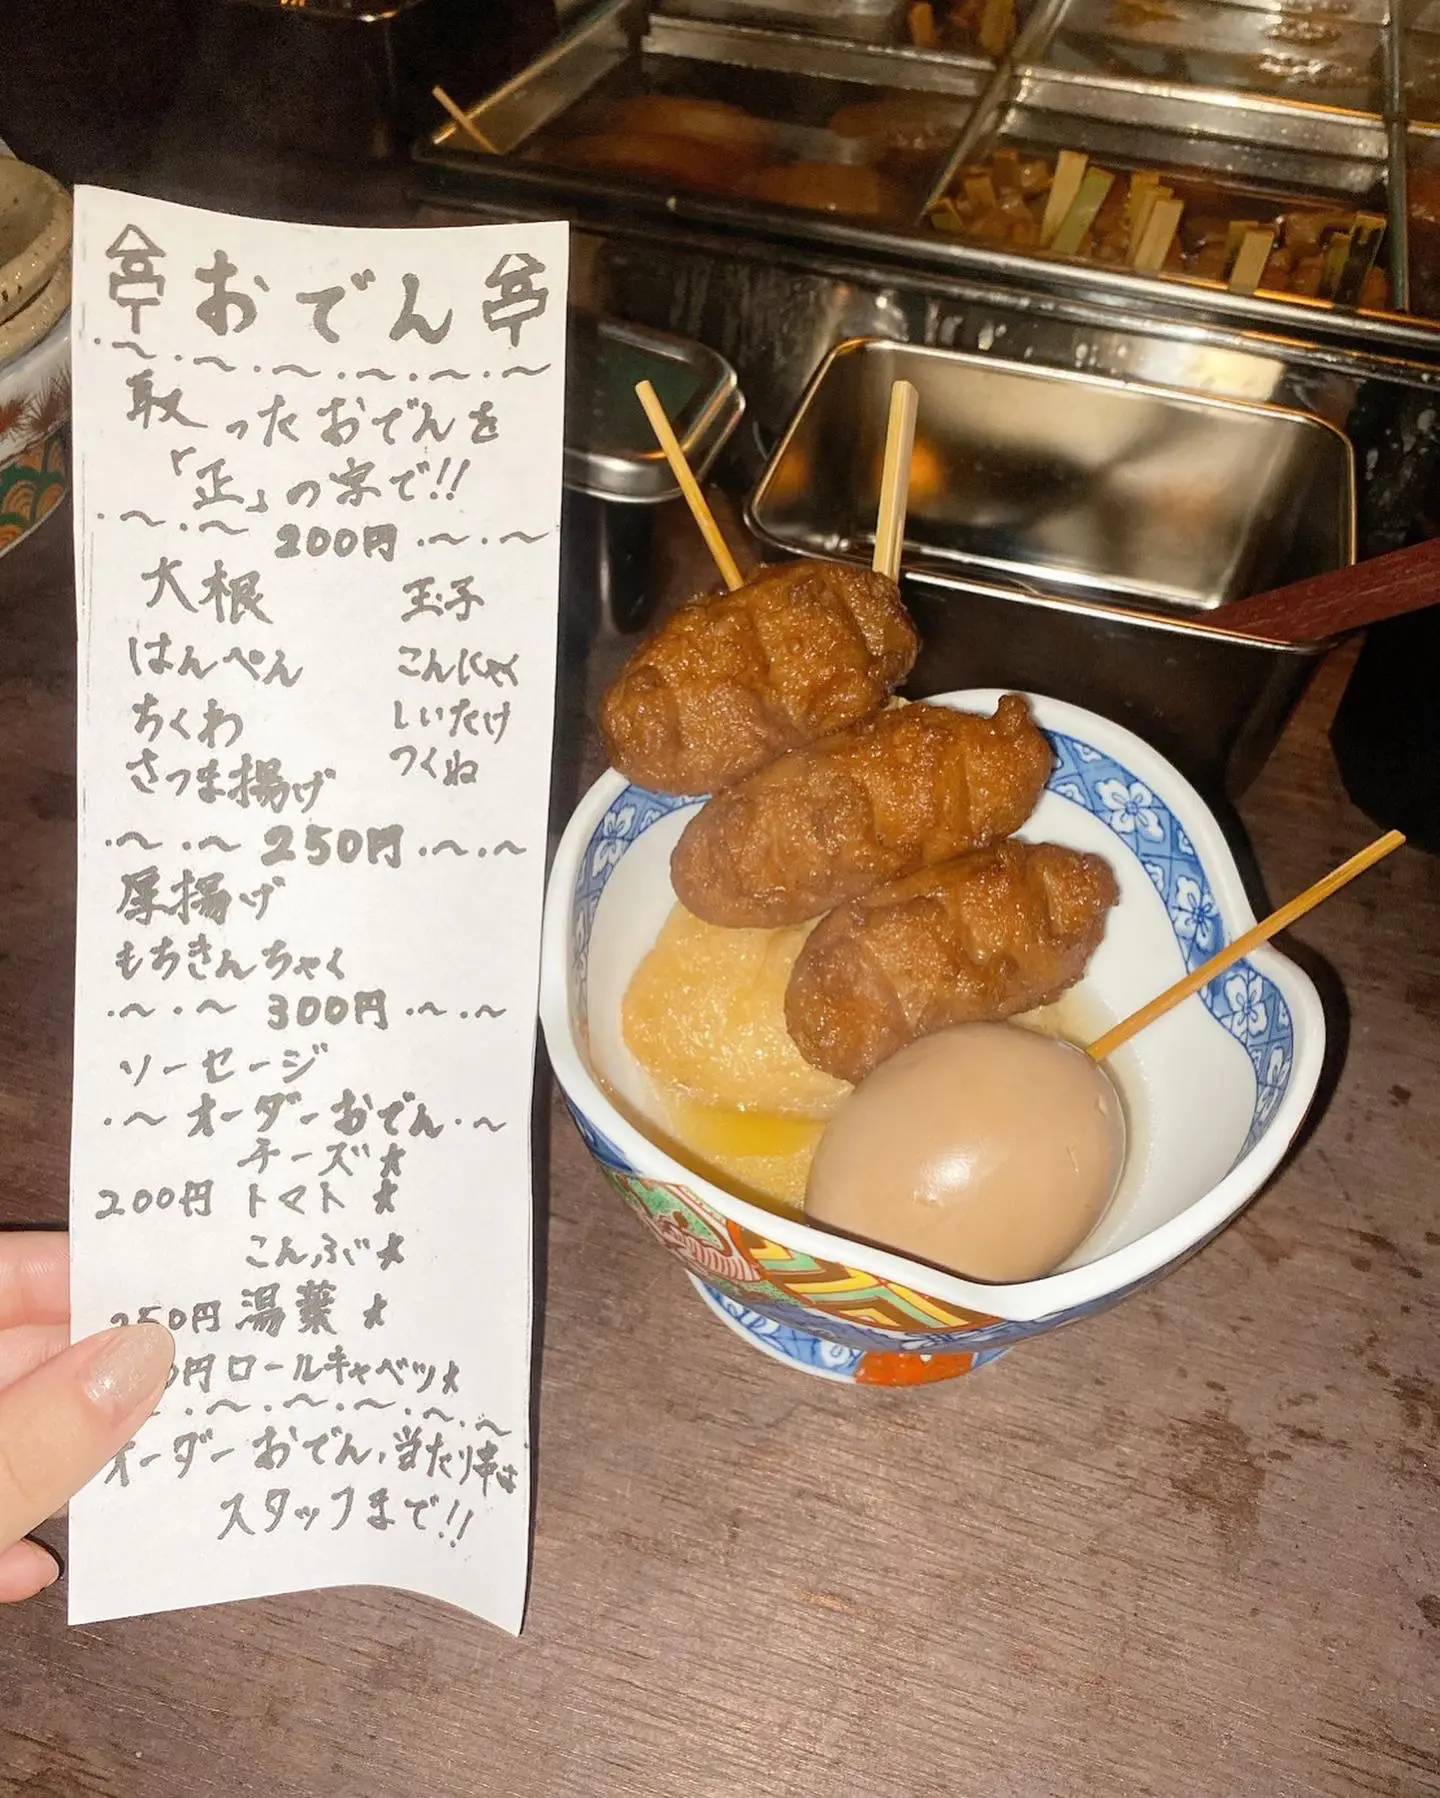 亭 おでん 亭
取ったおでんを
「正」の字で!!
200円
大根 玉子
はんぺん こんにゃく
ちくわ しいたけ
さつま揚げ つくね
250円
厚揚げ
もちきんちゃく
300円
ソーセージ
オーダーおでん
チーズ★
200円 トマト★
こんぶ★
250円 湯葉★
円 ロールキャベツ★
オーダーおでん、当たり串は
スタッフまで!!